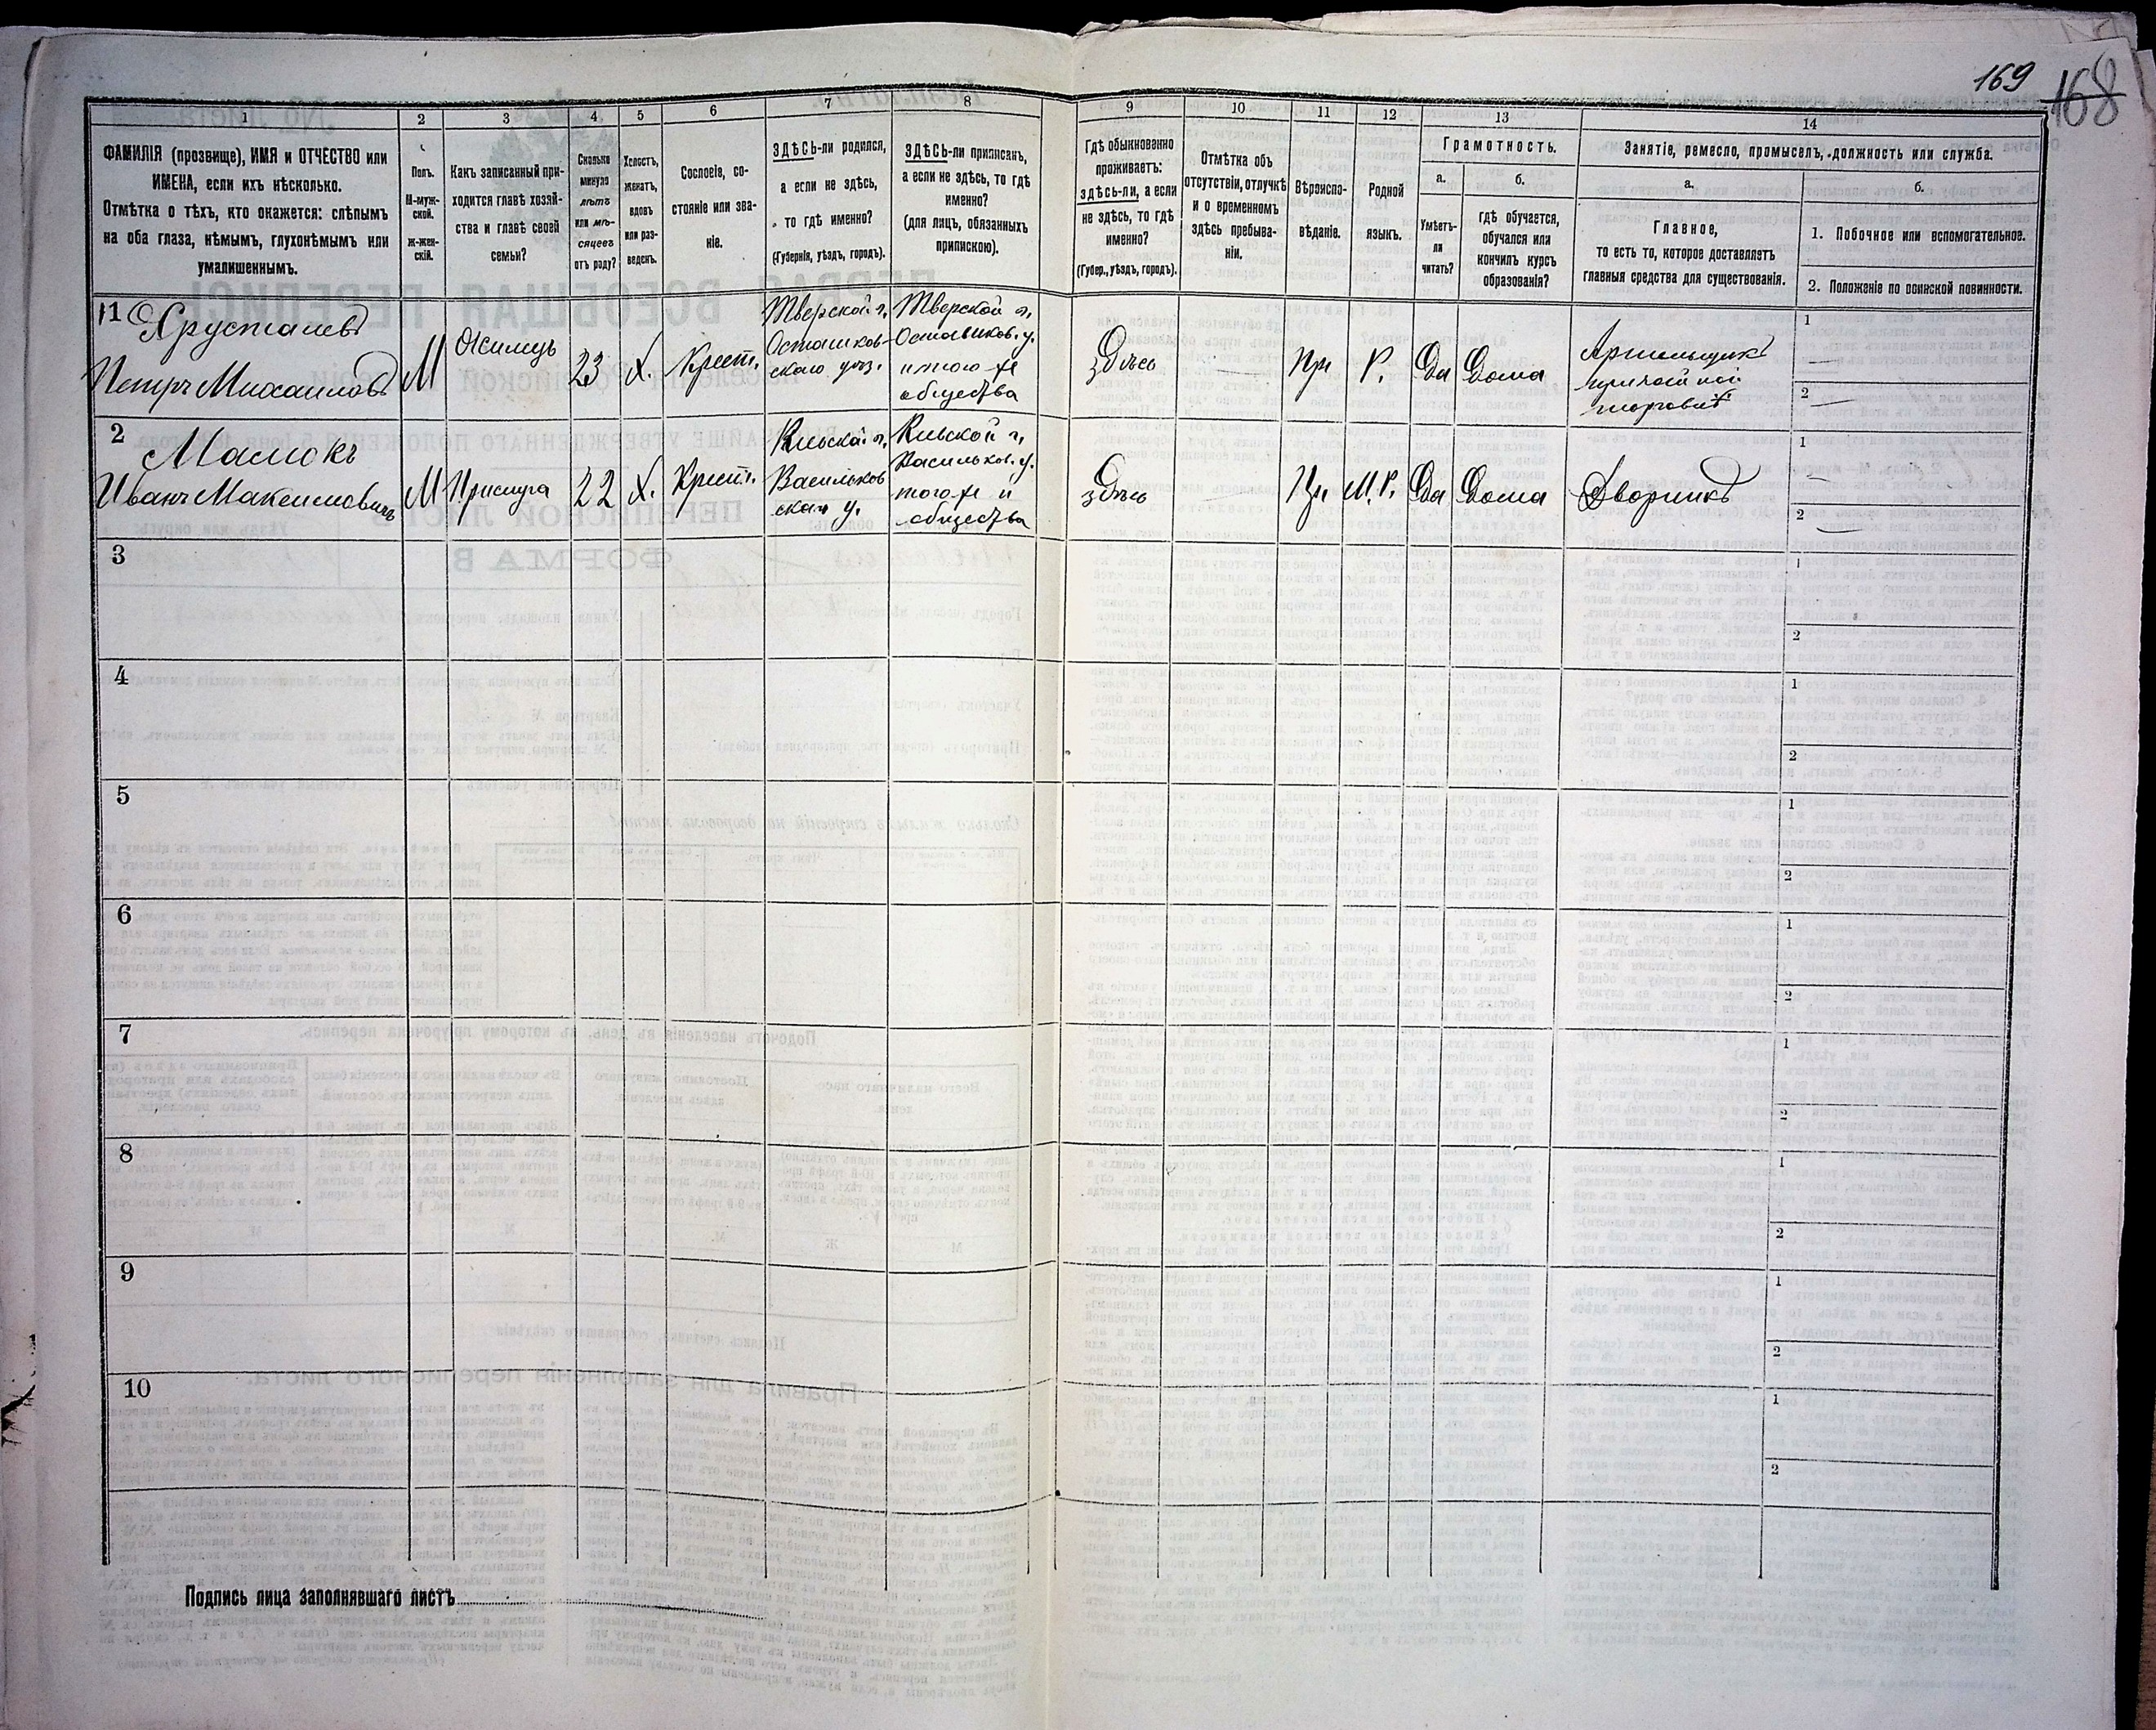 169
168
1
2
3
4
5
6
7
8
9
10
11
12
13
14
ФАМИЛІЯ (прозвище), ИМЯ и ОТЧЕСТВО или
ИМЕНА, если ихъ нѣсколько.
Отмѣтка о тѣхъ, кто окажется: слѣпымъ
на оба глаза, нѣмымъ, глухонѣмымъ или
умалишеннымъ.
Полъ.
М-муж-
ской.
Ж-жен-
скій.
Какъ записанный при-
ходится главѣ хозяй-
ства и главѣ своей
семьи?
Сколько
минуло
лѣтъ
или мѣ-
сяцевъ
отъ роду?
Холостъ,
женатъ,
вдовъ
или раз-
веденъ.
Сословіе, со-
стояніе или зва-
ніе.
ЗДѢСЬ-ли родился,
а если не здѣсь,
то гдѣ именно?
(Губернія, уѣздъ, городъ).
ЗДѢСЬ-ли приписанъ,
а если не здѣсь, то гдѣ
именно?
(для лицъ, обязанныхъ
припискою).
Гдѣ обыкновенно
проживаетъ:
здѣсь-ли, а если
не здѣсь, то гдѣ
именно?
(Губер., уѣздъ, городъ).
Отмѣтка объ
отсутствіи, отлучкѣ
и о временномъ
здѣсь пребыва-
ніи.
Вѣроиспо-
вѣданіе.
Родной
языкъ.
Грамотность.
а.
Умѣетъ-
ли
читать?
б.
гдѣ обучается,
обучался или
кончилъ курсъ
образованія?
Занятіе, ремесло, промыселъ, должность или служба.
а.
Главное,
то есть то, которое доставляетъ
главныя средства для существованія.
б.
1. Побочное или вспомогательное.
2. Положеніе по воинской повинности.
1
Хрусталевъ
Петръ Михаиловъ
М
Жилецъ
23
Х.
Крест.
Тверской г.
Осташков-
скаго уѣз.
Тверской г.
Осташков. у.
того же
общества
здѣсь
Пр
Р.
Да
Дома
Артельщикъ
торговли
1
2
2
Малюкъ
Иванъ Максимовичъ
М
Прислуга
22
Х.
Крест.
Кіевской г.
Васильков
скаго у.
Кіевской г.
Васильков. у.
того же и
общества
здѣсь
Пр
М.Р.
Да
Дома
Дворникъ
1
2
3
1
2
4
1
2
5
1
2
6
1
2
7
1
2
8
1
2
9
1
2
10
1
2
Подпись лица заполнявшаго листъ